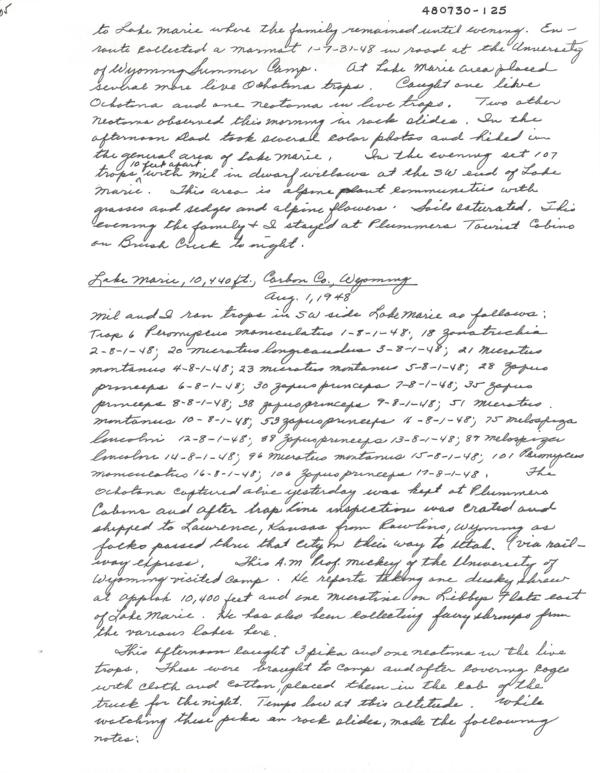 480730-125
to Lake Marie where the family remained until evening. En-
route collected a marmot 1-7-31-48 in road at the University
of Wyoming Summer Camp. At Lake Marie area placed
several more live Ochotona traps. Caught one live
Ochotona and one neotoma in live traps. Two other
Neotoma observed this morning in rock slides. In the
afternoon Dad took several color photos and hiked in
the general area of Lake Marie. In the evening set 107
traps 10 feet apart with Mil in dwarf willows at the SW end of Lake
Marie. This area is alpine plant communities with
grasses and sedges and alpine flowers. Soils saturated. This
evening the family & I stayed at Plummers Tourist Cabins
on Brush Creek to night.
Lake Marie, 10,440 ft., Carbon Co., Wyoming
Aug. 1, 1948
Mil and I ran traps in SW side Lake Marie as follows:
Trap 6 Peromyscus maniculatus 1-8-1-48; 18 Zonotrichia
2-8-1-48; 20 microtus longicaudus 3-8-1-48; 21 Microtus
montanus 4-8-1-48; 23 microtus montanus 5-8-1-48; 28 Zapus
princeps 6-8-1-48; 30 zapus princeps 7-8-1-48; 35 zapus
princeps 8-8-1-48; 38 zapus princeps 9-8-1-48; 51 Microtus
montanus 10-8-1-48; 53 zapus princeps -8-1-48; 75 melospiza
lincolni 12-8-1-48; 88 Zapus princeps 13-8-1-48; 89 melospiza
lincolni 14-8-1-48; 96 microtus montanus 15-8-1-48; 101 Peromyscus
maniculatus 16-8-1-48; 106 Zapus princeps 17-8-1-48. The
Ochotona captured alive yesterday was kept at Plummers
Cabins and after trap line inspection was crated and
shipped to Lawrence, Kansas from Rawlins, Wyoming as
folks passed thru that city on their way to Utah. (via rail-
way express. This A.M Prof. Mickey of the University of
Wyoming visited camp. He reports taking one dusky shrew
at approx 10,400 feet and one microtine on Libbys Flats east
of Lake Marie. He has also been collecting fairy shrimps from
the various lakes here.
This afternoon caught 3 pika and one neotoma in the live
traps. These were brought to camp and after covering cages
with cloth and cotton, placed them in the cab of the
truck for the night. Temps low at this altitude. While
watching these pika on rock slides, made the following
notes: